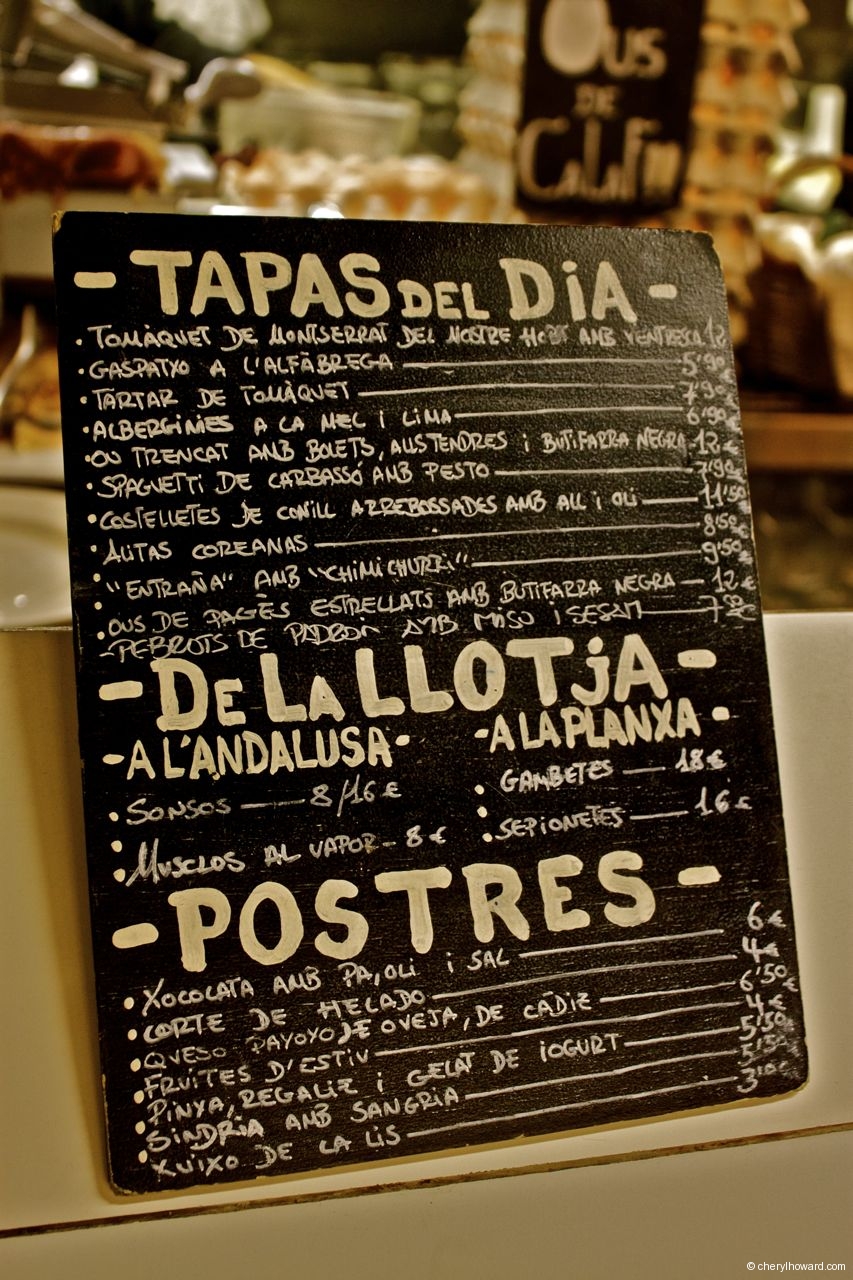 OUS
DE
CALAF
- TAPAS DEL DiA -
• TOMÀQUET DE MONTSERRAT DEL NOSTRE HORT AMB VENTRESCA 12
• GASPATXO A L'ALFÀBREGA — 5'90
• TÀRTAR DE TOMÀQUET — 7'90
• ALBERGINIES A LA MEL I LIMA — 6'90
• OU TRENCAT AMB BOLETS, ALLS TENDRES i BUTIFARRA NEGRA 12€
• SPAGUETTI DE CARBASSÓ AMB PESTO — 7'90
• COSTELLETES DE CONILL ARREBOSSADES AMB ALL i OLI — 11'50
• ALITAS COREANAS — 8'50
• "ENTRAÑA" AMB "CHIMICHURRi" — 9'50
• OUS DE PAGÈS ESTRELLATS AMB BUTIFARRA NEGRA — 12€
- PEBROTS DE PADRÓN AMB MISO i SESAM — 7'50€
- DE LA LLOTjA -
- A L'ANDALUSA -
• SONSOS — 8/16 €
• MUSCLOS AL VAPOR - 8 €
- A LA PLANXA •
• GAMBETES — 18 €
• SEPIONETES — 16 €
- POSTRES -
• XOCOLATA AMB PA, OLI i SAL — 6€
• CORTE DE HELADO — 4€
• QUESO PAYOYO DE OVEJA, DE CÁDIZ — 6'50€
• FRUITES D'ESTIU — 4€
• PINYA, REGALIZ i GELAT DE iOGURT — 5'50
• SINDRIA AMB SANGRIA — 5'50
• XUIXO DE LA LIS — 3'00
© cherylhoward.com